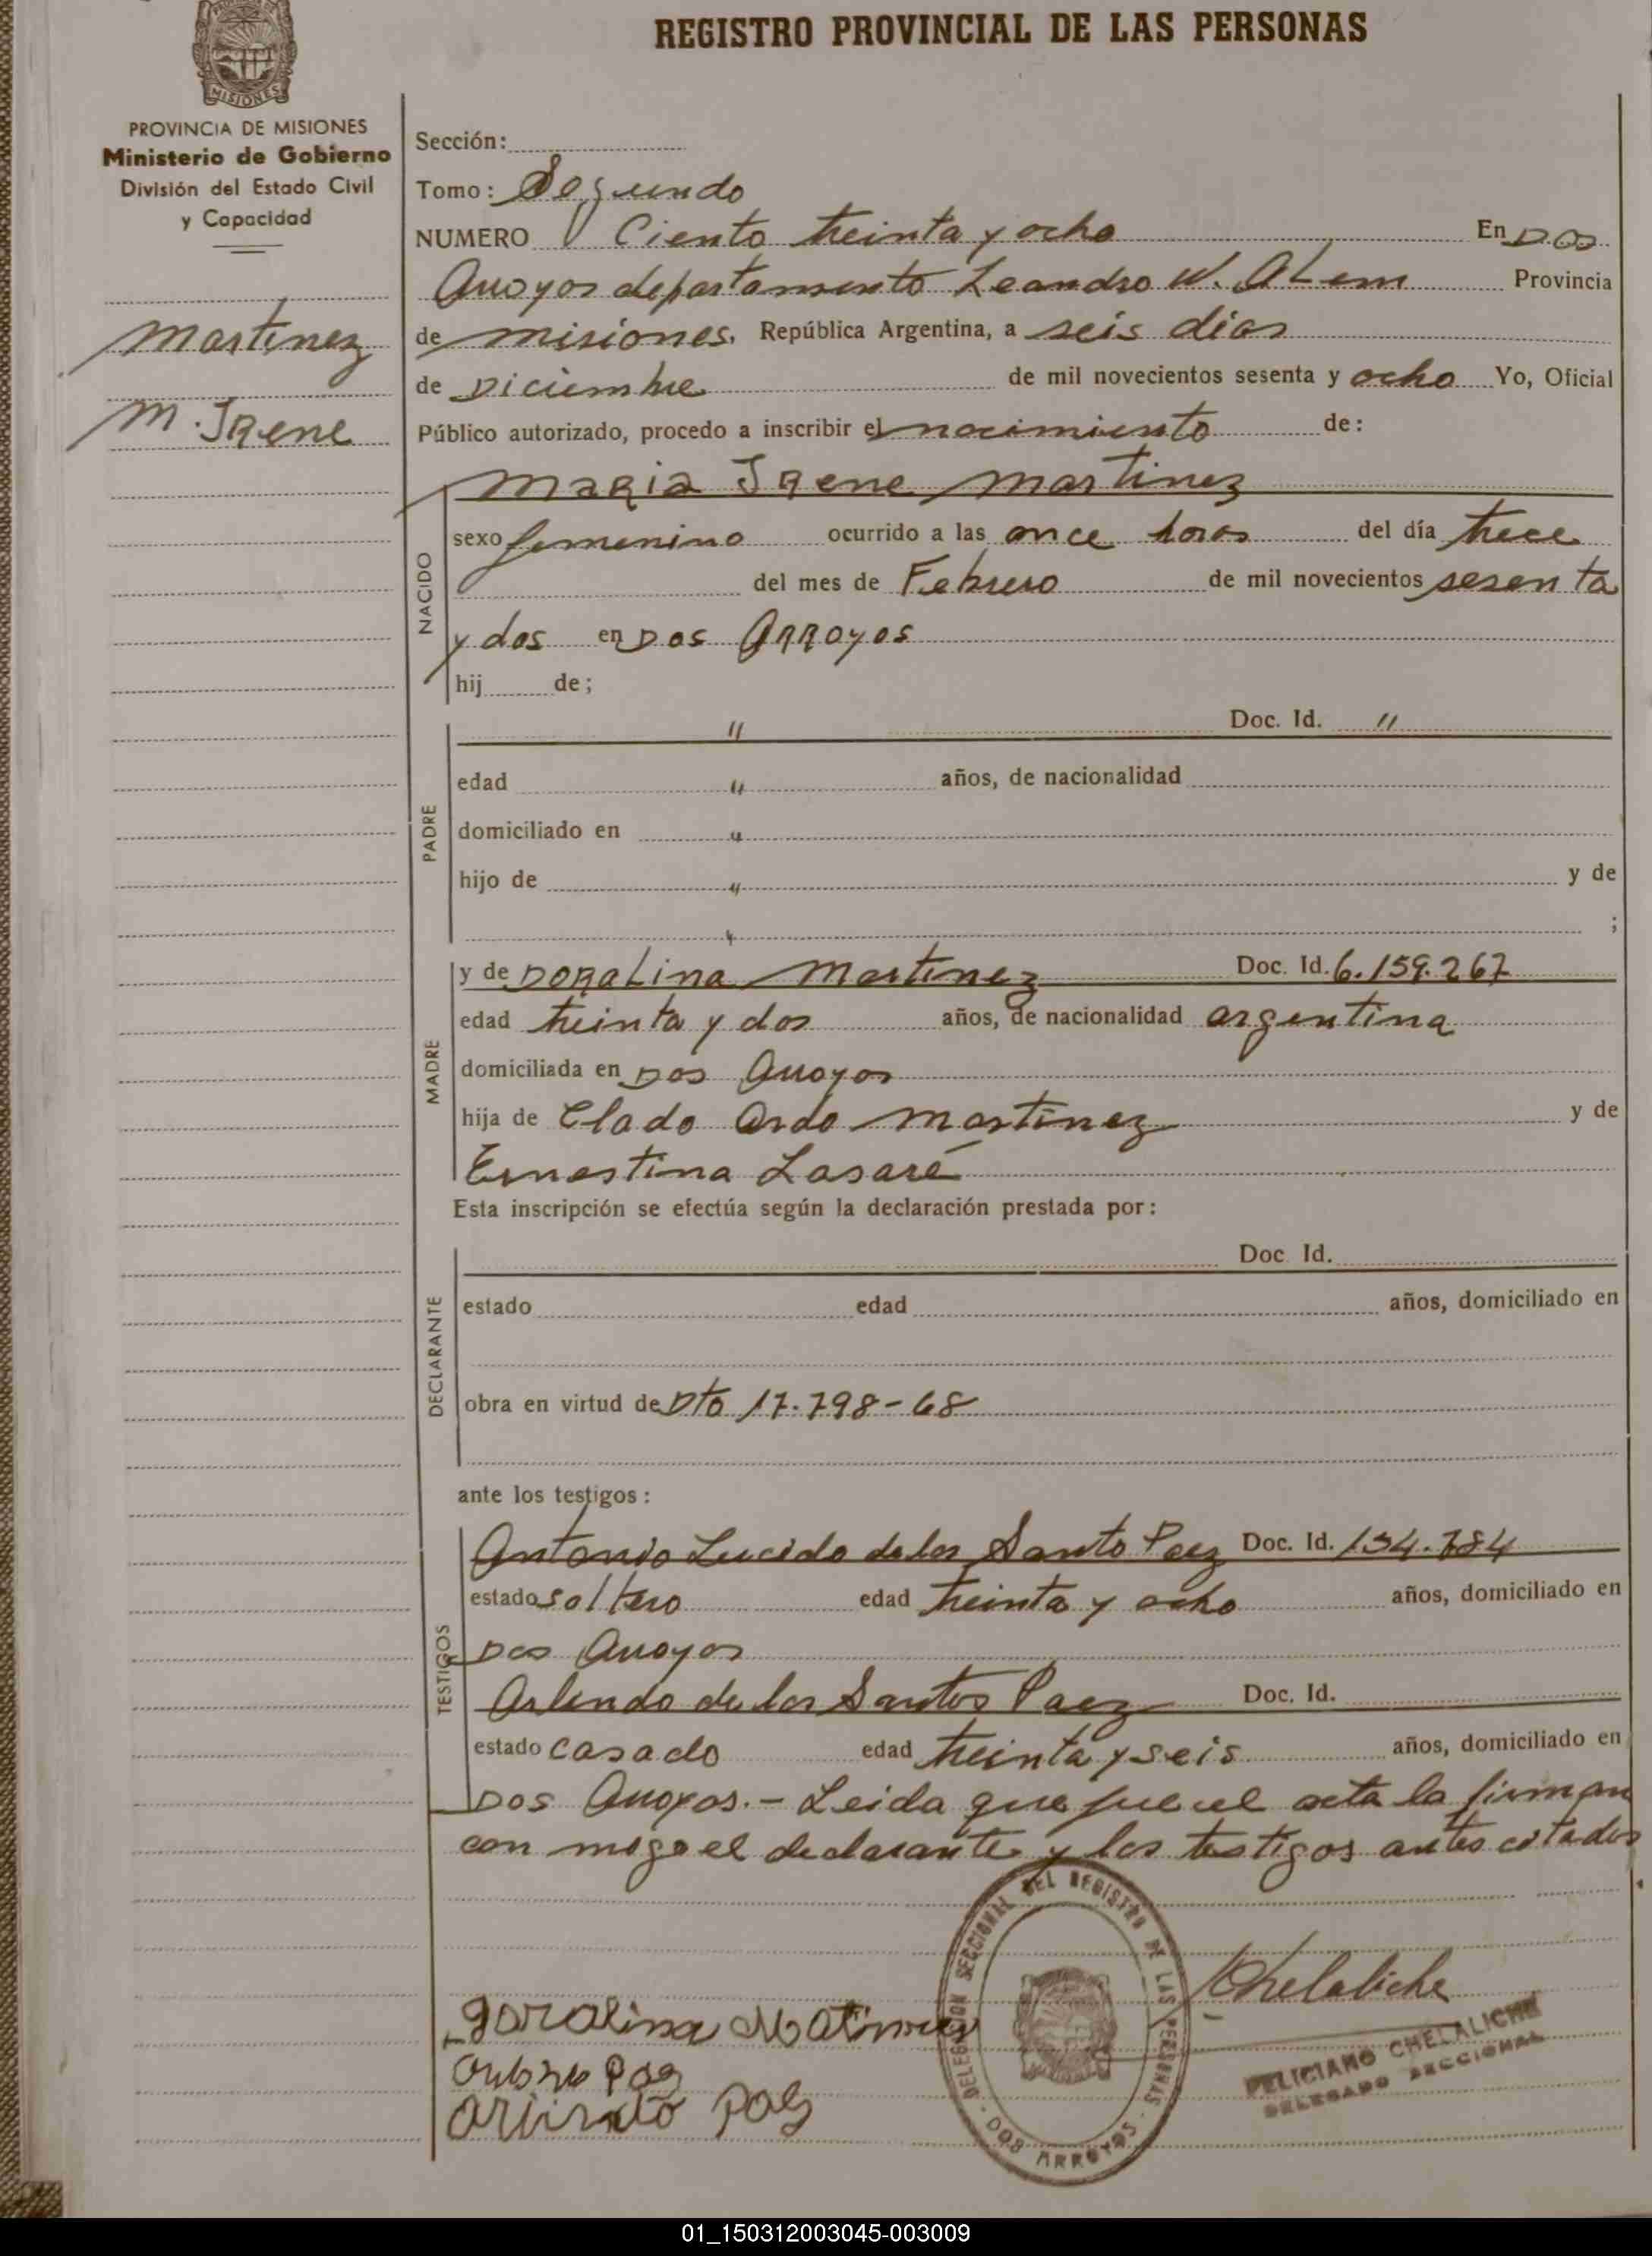 REGISTRO PROVINCIAL DE LAS PERSONAS
MISIONES
PROVINCIA DE MISIONES
Ministerio de Gobierno
División del Estado Civil
y Capacidad
Martinez
M. Irene
Sección:
Tomo: Segundo
NUMERO Ciento treinta y ocho En Dos
Arroyos departamento Leandro N. Alem Provincia
de misiones. República Argentina, a seis días
de Diciembre de mil novecientos sesenta y ocho Yo, Oficial
Público autorizado, procedo a inscribir el nacimiento de:
NACIDO
Maria Irene Martinez
sexo femenino ocurrido a las once horas del día trece
del mes de Febrero de mil novecientos sesenta
y dos en Dos Arroyos
hij de;
PADRE
" Doc. Id. "
edad " años, de nacionalidad
domiciliado en "
hijo de " y de
" ;
MADRE
y de Doralina Martinez Doc. Id. 6.159.267
edad treinta y dos años, de nacionalidad argentina
domiciliada en Dos Arroyos
hija de Clado Ardo Martinez y de
Ernestina Lasaré
Esta inscripción se efectúa según la declaración prestada por:
DECLARANTE
Doc. Id.
estado edad años, domiciliado en
obra en virtud de Dto 17.798-68
ante los testigos:
TESTIGOS
Antonio Lucido de los Santo Paez Doc. Id. 134.784
estado soltero edad treinta y ocho años, domiciliado en
Dos Arroyos
Arlindo de los Santos Paez Doc. Id.
estado casado edad treinta y seis años, domiciliado en
Dos Arroyos.- Leida que fue el acta la firman
con migo el declarante y los testigos antes citados
DELEGACION SECCIONAL DEL REGISTRO DE LAS PERSONAS - DOS ARROYOS -
Chelaliche
FELICIANO CHELALICHE
DELEGADO SECCIONAL
Doralina Matinez
Paz
Arlindo Paz
01_150312003045-003009